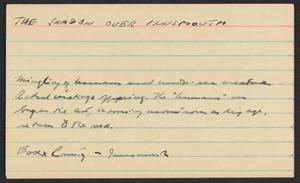 THE SHADOW OVER INNSMOUTH
Mingling of humans and under-sea creatures.
Actual matings offspring. The "humans" no
longer die but, becoming as they age,
return to the sea.
Essex County - Innsmouth